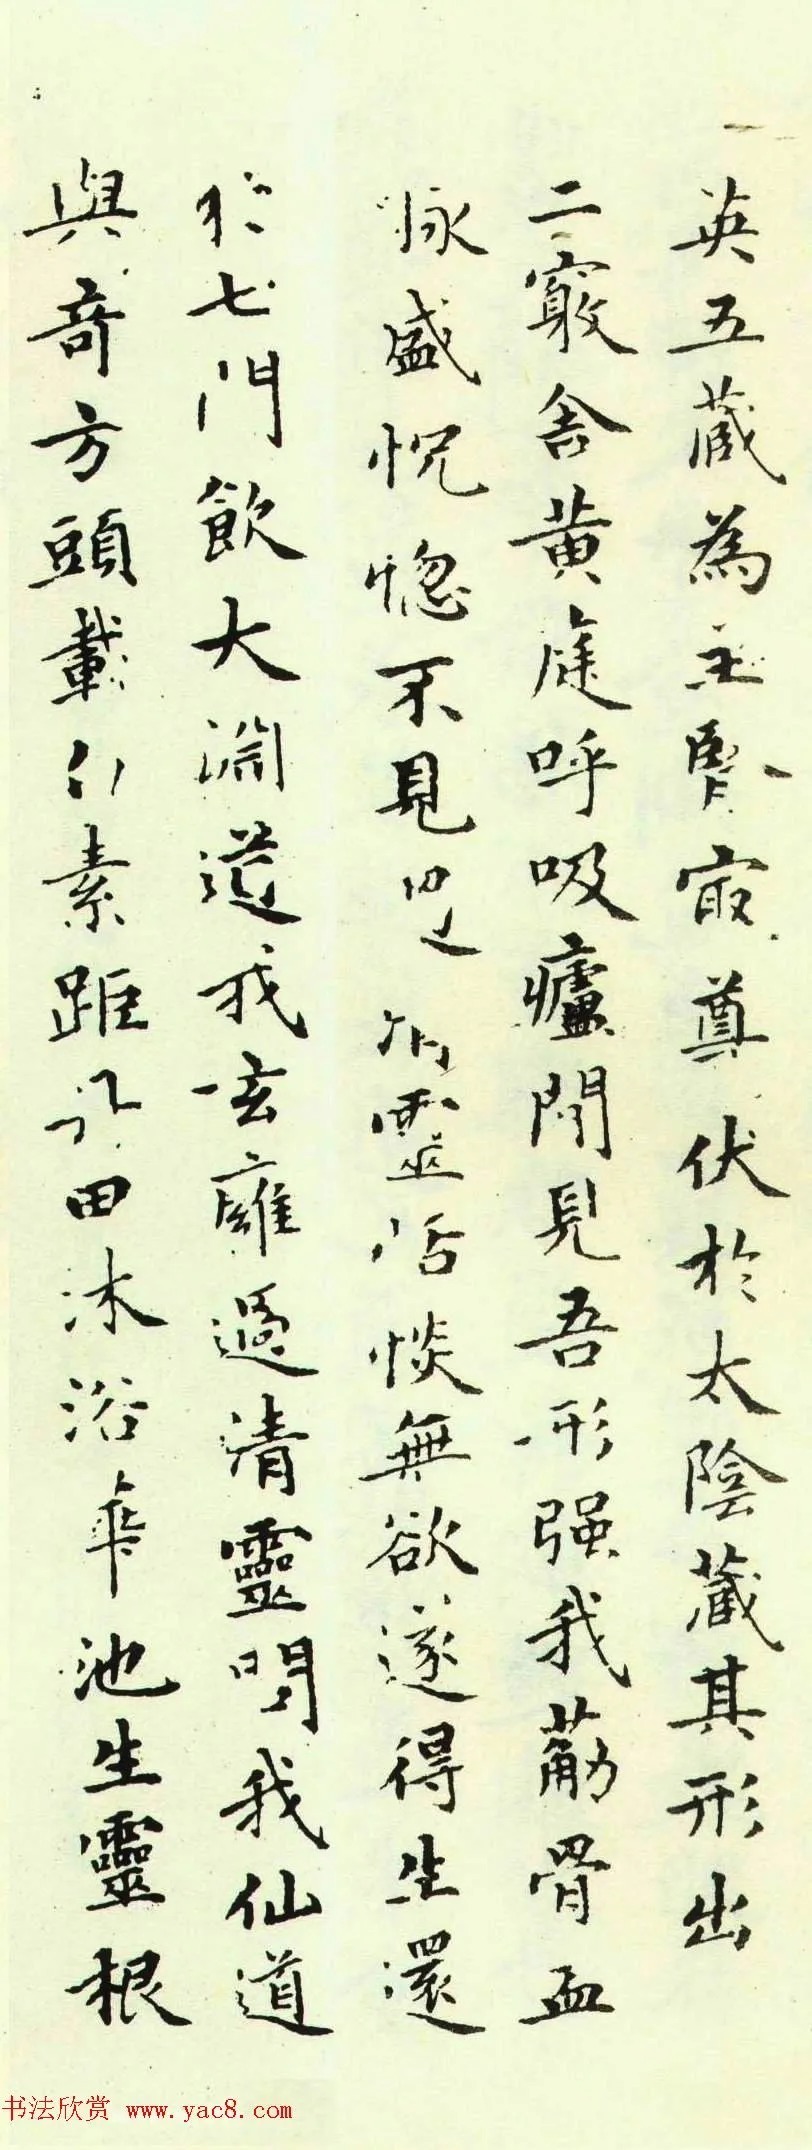 英五藏為主腎最尊伏於太陰藏其形出
二竅舍黄庭呼吸廬間見吾形强我筋骨血
脉盛怳惚不見過清靈恬惔無欲遂得生還
於七門飲大淵道我玄雍過清靈問我仙道
與奇方頭載白素距丹田沐浴華池生靈根
书法欣赏 www.yac8.com